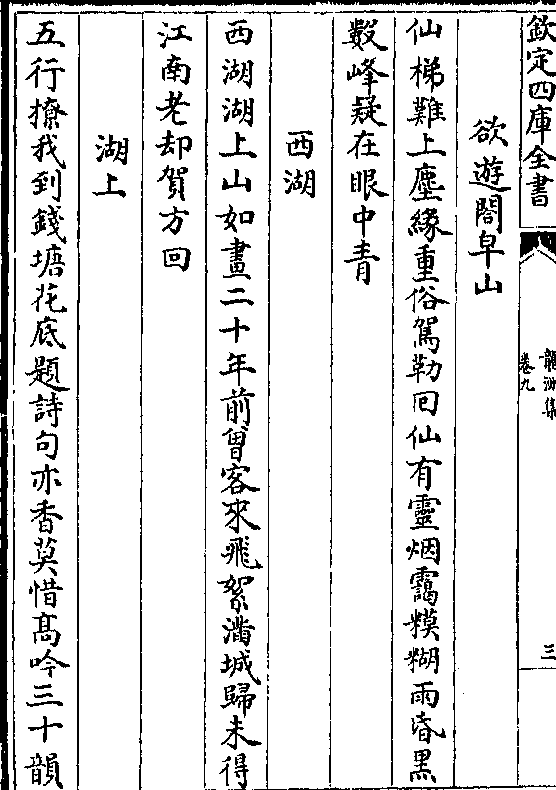 欽定四庫全書
龍洲集
卷九
三
欲遊閤皁山
仙梯難上塵緣重俗駕勒囘仙有靈烟靄糢糊雨昏黑
數峰疑在眼中青
西湖
西湖湖上山如畫二十年前曾客來飛絮滿城歸未得
江南老却賀方回
湖上
五行撩我到錢塘花底題詩句亦香莫惜髙吟三十韻